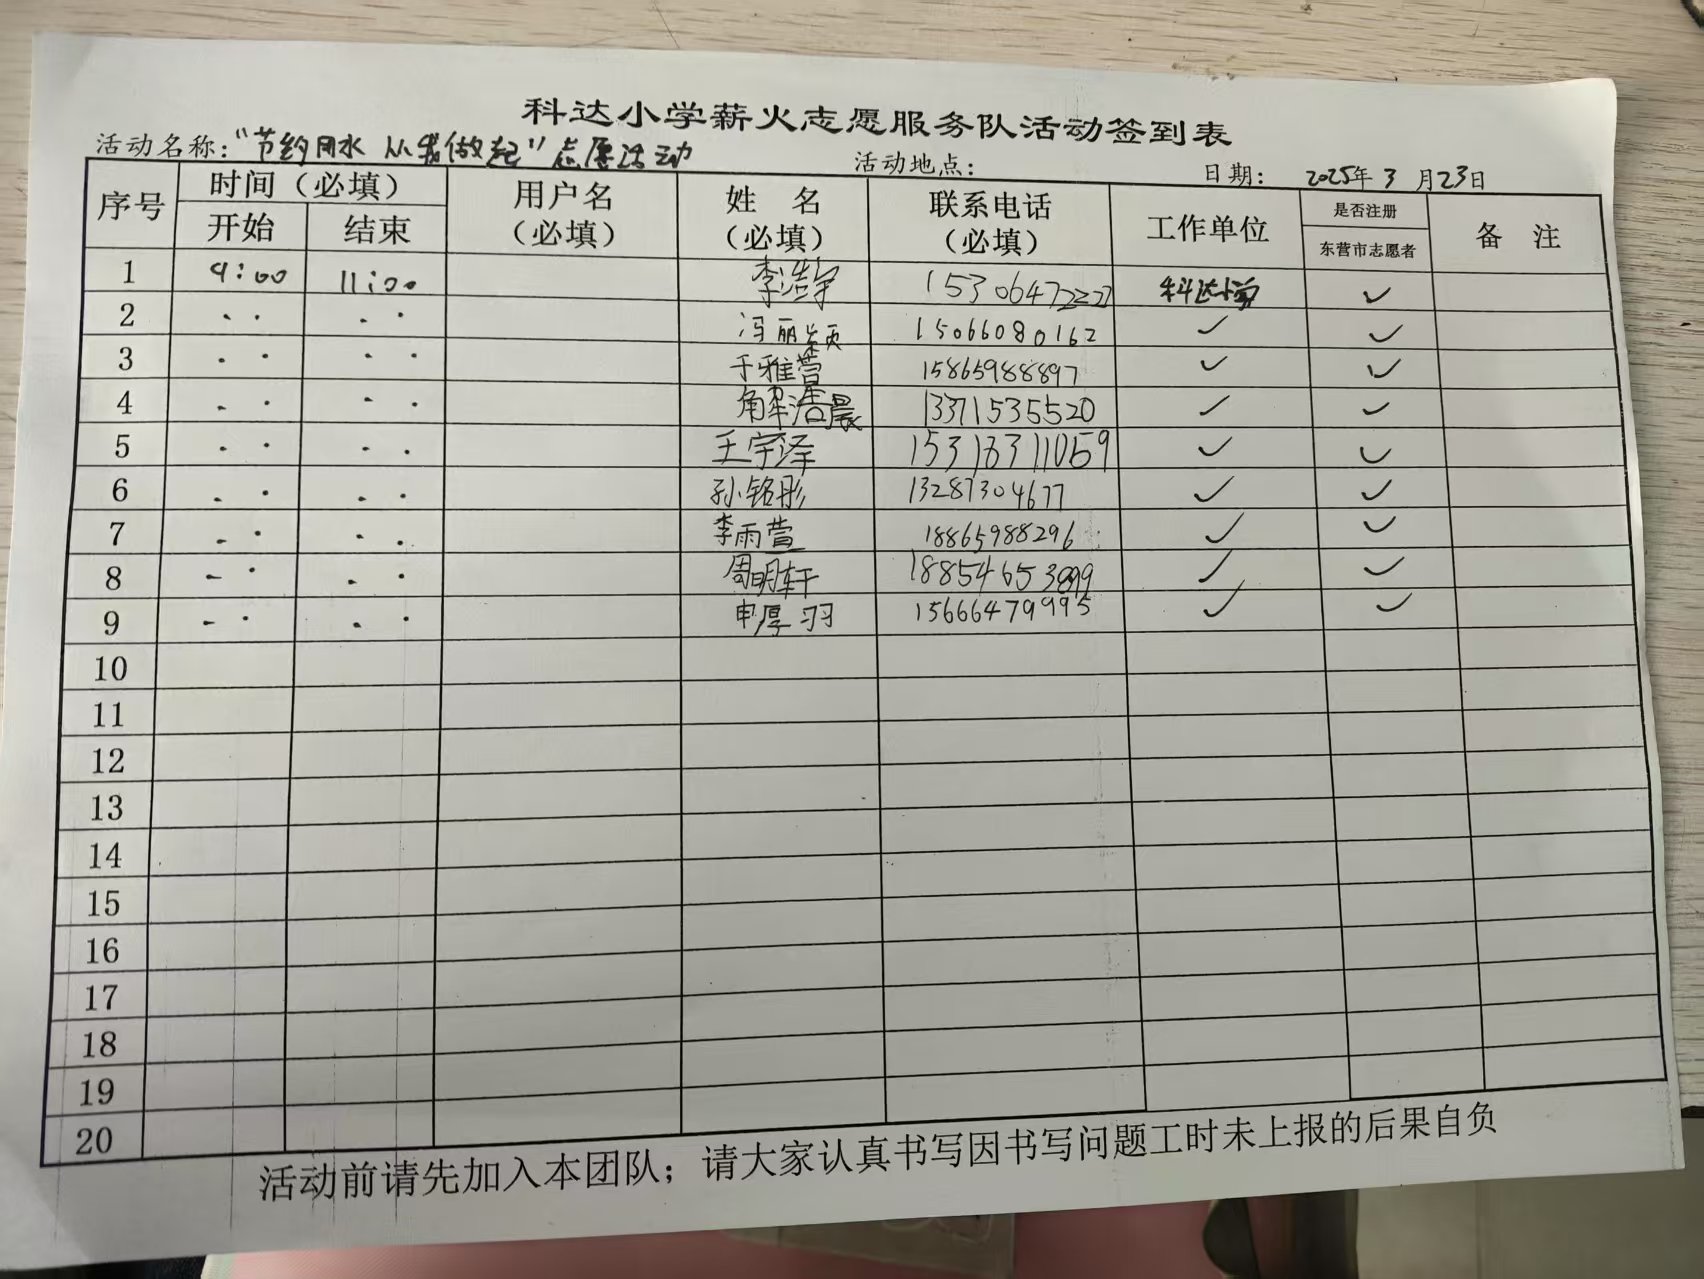 科达小学薪火志愿服务队活动签到表
活动名称："节约用水 从我做起"志愿活动 活动地点： 日期： 2025年3月23日
序号 时间（必填） 用户名（必填） 姓 名（必填） 联系电话（必填） 工作单位 是否注册 东营市志愿者 备 注
开始 结束
1 9:00 11:00 李浩宇 科达小学 ✓
2 .. .. 冯丽颖 15066080162 ✓ ✓
3 .. .. 于雅萱 15865988897 ✓ ✓
4 .. .. 解浩晨 13371535520 ✓ ✓
5 .. .. 王宇泽 ✓ ✓
6 .. .. 孙铭彤 13287304677 ✓ ✓
7 .. .. 李雨萱 18865988296 ✓ ✓
8 .. .. 周明轩 ✓ ✓
9 .. .. 申厚羽 15666479995 ✓ ✓
10
11
12
13
14
15
16
17
18
19
20
活动前请先加入本团队；请大家认真书写因书写问题工时未上报的后果自负